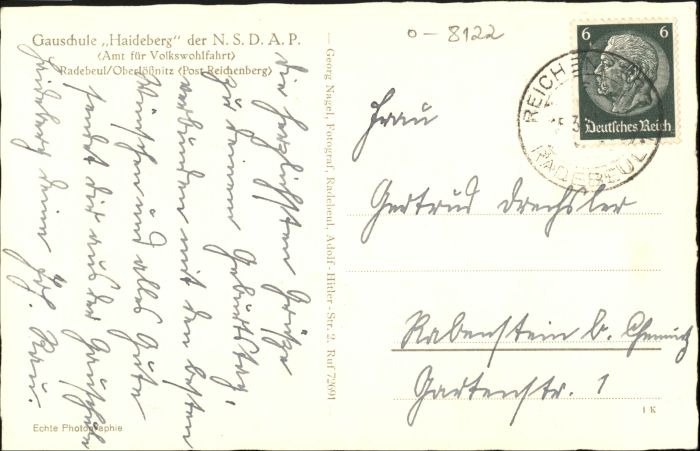 Gauschule „Haideberg" der N. S. D. A. P.
(Amt für Volkswohlfahrt)
Radebeul/Oberlößnitz (Post Reichenberg)
Die herzlichsten Grüße
zu deinem Geburtstag,
verbunden mit den besten
Wünschen und alles Gute
sendet dir aus der Gauschule
Haideberg deine
Echte Photographie
— Georg Nagel, Fotograf, Radebeul, Adolf-Hitler-Str. 2. Ruf 72691 —
0 - 8122
6 6
Deutsches Reich
REICHENBERG
RADEBEUL
Frau
Gertrud Drechsler
Rabenstein b. Chemnitz
Gartenstr. 1
1 K